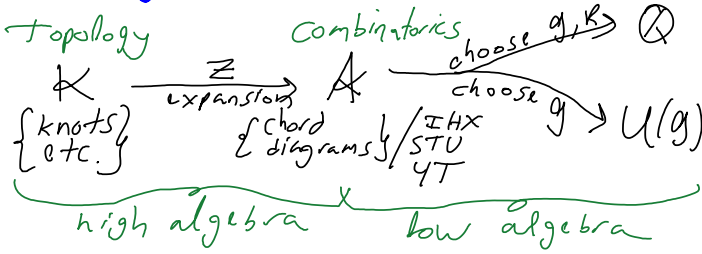 Topology Combinatorics
K Z expansion A choose g, R Q
choose g U(g)
{knots etc.} {chord diagrams} / IHX STU 4T
high algebra low algebra